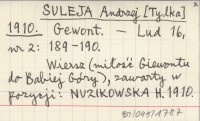 SULEJA Andrzej [Tylka]
x
1910. Gewont. – Lud 16,
nr 2: 189-190.
Wiersz (miłość Giewontu
do Babiej Góry), zawarty w
pozycji: NUZIKOWSKA H. 1910.